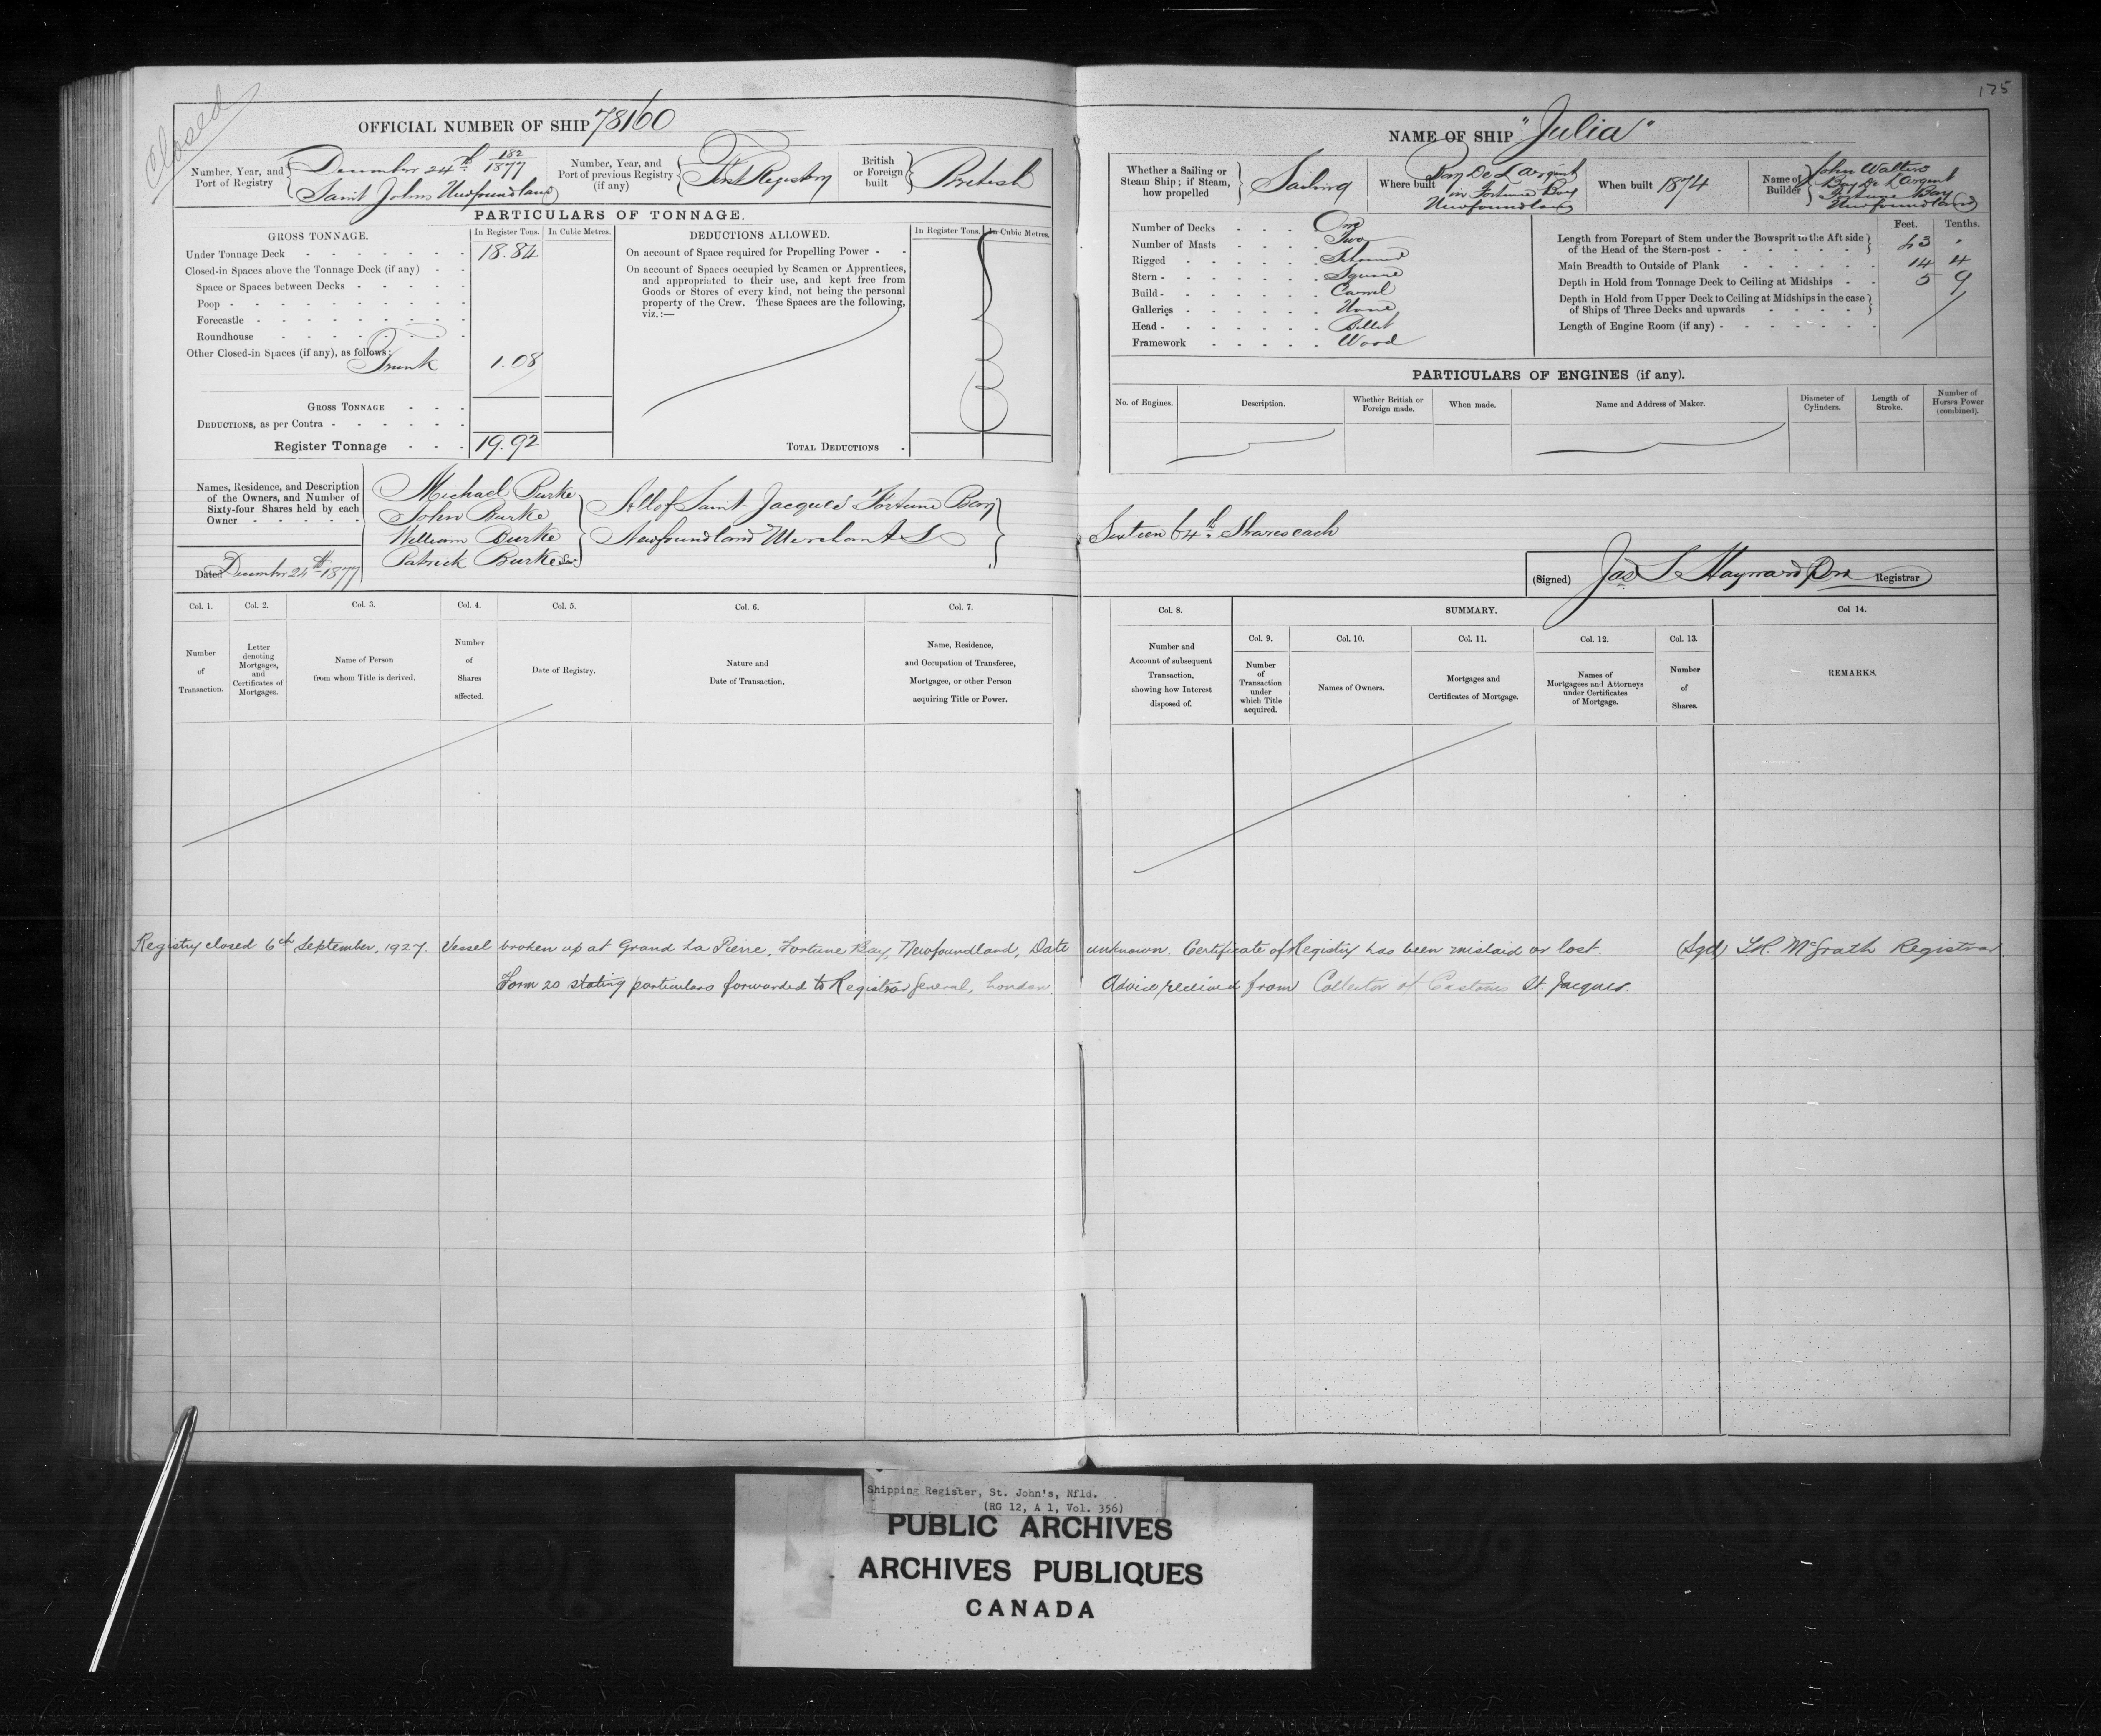 175
Closed
OFFICIAL NUMBER OF SHIP 78160
Number, Year, and Port of Registry
December 24th 182/1877
Saint Johns Newfoundland
Number, Year, and Port of previous Registry (if any)
First Registry
British or Foreign built
British
PARTICULARS OF TONNAGE.
GROSS TONNAGE.
In Register Tons.
In Cubic Metres.
DEDUCTIONS ALLOWED.
In Register Tons.
In Cubic Metres.
Under Tonnage Deck 18.84
Closed-in Spaces above the Tonnage Deck (if any)
Space or Spaces between Decks
Poop
Forecastle
Roundhouse
Other Closed-in Spaces (if any), as follows;
Trunk 1.08
GROSS TONNAGE
DEDUCTIONS, as per Contra
Register Tonnage 19.92
On account of Space required for Propelling Power
On account of Spaces occupied by Seamen or Apprentices,
and appropriated to their use, and kept free from
Goods or Stores of every kind, not being the personal
property of the Crew. These Spaces are the following,
viz.:—
TOTAL DEDUCTIONS
Names, Residence, and Description
of the Owners, and Number of
Sixty-four Shares held by each
Owner
Michael Burke
John Burke
William Burke
Patrick Burke Senr.
All of Saint Jacques Fortune Bay
Newfoundland Merchants
Dated December 24th 1877
NAME OF SHIP "Julia"
Whether a Sailing or Steam Ship; if Steam, how propelled
Sailing
Where built
Bay De L'Argent
in Fortune Bay
Newfoundland
When built 1874
Name of Builder
John Walters
Bay De L'Argent
Fortune Bay
Newfoundland
Number of Decks One
Number of Masts Two
Rigged Schooner
Stern Square
Build Carvel
Galleries None
Head Billet
Framework Wood
Feet. Tenths.
Length from Forepart of Stem under the Bowsprit to the Aft side
of the Head of the Stern-post
Main Breadth to Outside of Plank 14 4
Depth in Hold from Tonnage Deck to Ceiling at Midships 5 9
Depth in Hold from Upper Deck to Ceiling at Midships in the case
of Ships of Three Decks and upwards
Length of Engine Room (if any)
PARTICULARS OF ENGINES (if any).
No. of Engines.
Description.
Whether British or Foreign made.
When made.
Name and Address of Maker.
Diameter of Cylinders.
Length of Stroke.
Number of Horses Power (combined).
Sixteen 64th Shares each
(Signed) Jas S Hayward Registrar
Col. 1. Col. 2. Col. 3. Col. 4. Col. 5. Col. 6. Col. 7.
Number of Transaction.
Letter denoting Mortgages, and Certificates of Mortgages.
Name of Person from whom Title is derived.
Number of Shares affected.
Date of Registry.
Nature and Date of Transaction.
Name, Residence, and Occupation of Transferee, Mortgagee, or other Person acquiring Title or Power.
Col. 8. SUMMARY. Col 14.
Col. 9. Col. 10. Col. 11. Col. 12. Col. 13.
Number and Account of subsequent Transaction, showing how Interest disposed of.
Number of Transaction under which Title acquired.
Names of Owners.
Mortgages and Certificates of Mortgage.
Names of Mortgagees and Attorneys under Certificates of Mortgage.
Number of Shares.
REMARKS.
Registry closed 6th September, 1927. Vessel broken up at Grand La Pierre, Fortune Bay, Newfoundland, Date unknown. Certificate of Registry has been mislaid or lost. (Sgd) McGrath Registrar.
Form 20 stating particulars forwarded to Registrar General, London. Advice received from Collector of Customs St. Jacques.
Shipping Register, St. John's, Nfld.
(RG 12, A 1, Vol. 356)
PUBLIC ARCHIVES
ARCHIVES PUBLIQUES
CANADA